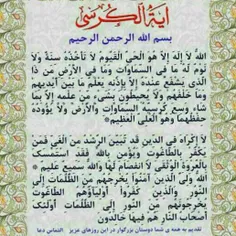 آیة الکرسی
بسم الله الرحمن الرحيم
اللهُ لاَ إِلَهَ إِلاَّ هُوَ الْحَيُّ الْقَيُّومُ لاَ تَأْخُذُهُ سِنَةٌ وَلاَ
نَوْمٌ لَهُ مَا فِي السَّمَاوَاتِ وَمَا فِي الأَرْضِ مَن ذَا
الَّذِي يَشْفَعُ عِنْدَهُ إِلاَّ بِإِذْنِهِ يَعْلَمُ مَا بَيْنَ أَيْدِيهِمْ
وَمَا خَلْفَهُمْ وَلاَ يُحِيطُونَ بِشَيْءٍ مِّنْ عِلْمِهِ إِلاَّ بِمَا
شَاءَ وَسِعَ كُرْسِيُّهُ السَّمَاوَاتِ وَالأَرْضَ وَلاَ يَؤُودُهُ
حِفْظُهُمَا وَهُوَ الْعَلِيُّ الْعَظِيمُ*
لاَ إِكْرَاهَ فِي الدِّينِ قَد تَّبَيَّنَ الرُّشْدُ مِنَ الْغَيِّ فَمَنْ
يَكْفُرْ بِالطَّاغُوتِ وَيُؤْمِن بِاللهِ فَقَدِ اسْتَمْسَكَ
بِالْعُرْوَةِ الْوُثْقَىَ لاَ انفِصَامَ لَهَا وَاللهُ سَمِيعٌ عَلِيمٌ*
اللهُ وَلِيُّ الَّذِينَ آمَنُواْ يُخْرِجُهُم مِّنَ الظُّلُمَاتِ إِلَى
النُّورِ وَالَّذِينَ كَفَرُواْ أَوْلِيَآؤُهُمُ الطَّاغُوتُ
يُخْرِجُونَهُم مِّنَ النُّورِ إِلَى الظُّلُمَاتِ أُوْلَئِكَ
أَصْحَابُ النَّارِ هُمْ فِيهَا خَالِدُونَ
تقدیم به همه ی شما دوستان بزرگوار در این روزهای عزیز التماس دعا